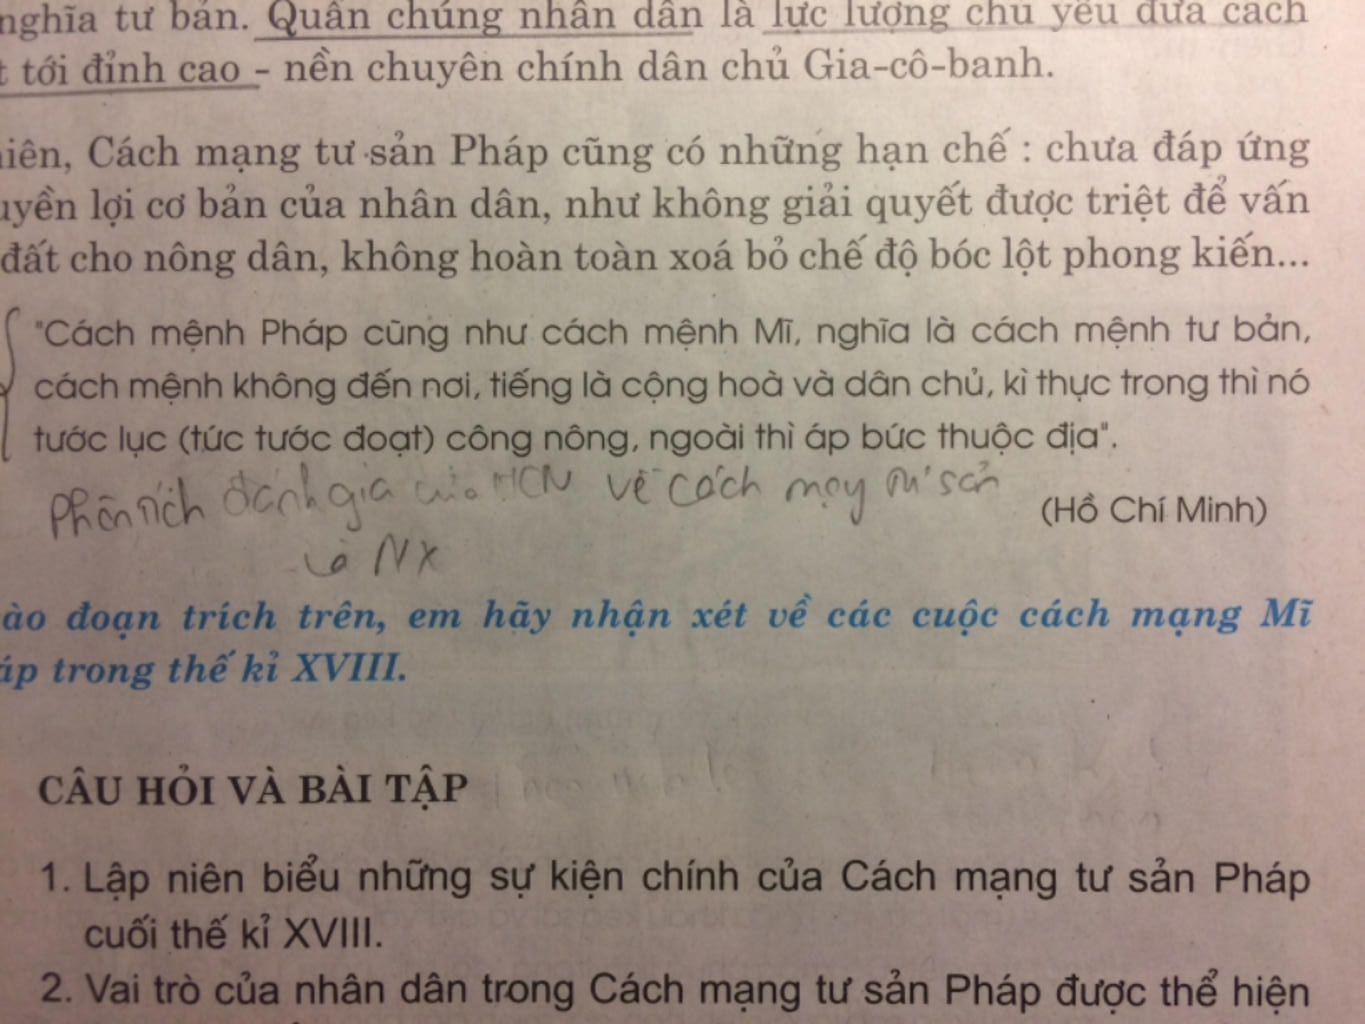 nghĩa tư bản. Quần chúng nhân dân là lực lượng chủ yếu đưa cách
t tới đỉnh cao - nền chuyên chính dân chủ Gia-cô-banh.
iên, Cách mạng tư sản Pháp cũng có những hạn chế : chưa đáp ứng
uyền lợi cơ bản của nhân dân, như không giải quyết được triệt để vấn
đất cho nông dân, không hoàn toàn xoá bỏ chế độ bóc lột phong kiến...
"Cách mệnh Pháp cũng như cách mệnh Mĩ, nghĩa là cách mệnh tư bản,
cách mệnh không đến nơi, tiếng là cộng hoà và dân chủ, kì thực trong thì nó
tước lục (tức tước đoạt) công nông, ngoài thì áp bức thuộc địa".
Phân tích đánh giá của HCM về cách mạng tư sản
(Hồ Chí Minh)
và NX
ào đoạn trích trên, em hãy nhận xét về các cuộc cách mạng Mĩ
áp trong thế kỉ XVIII.
CÂU HỎI VÀ BÀI TẬP
1. Lập niên biểu những sự kiện chính của Cách mạng tư sản Pháp
cuối thế kỉ XVIII.
2. Vai trò của nhân dân trong Cách mạng tư sản Pháp được thể hiện